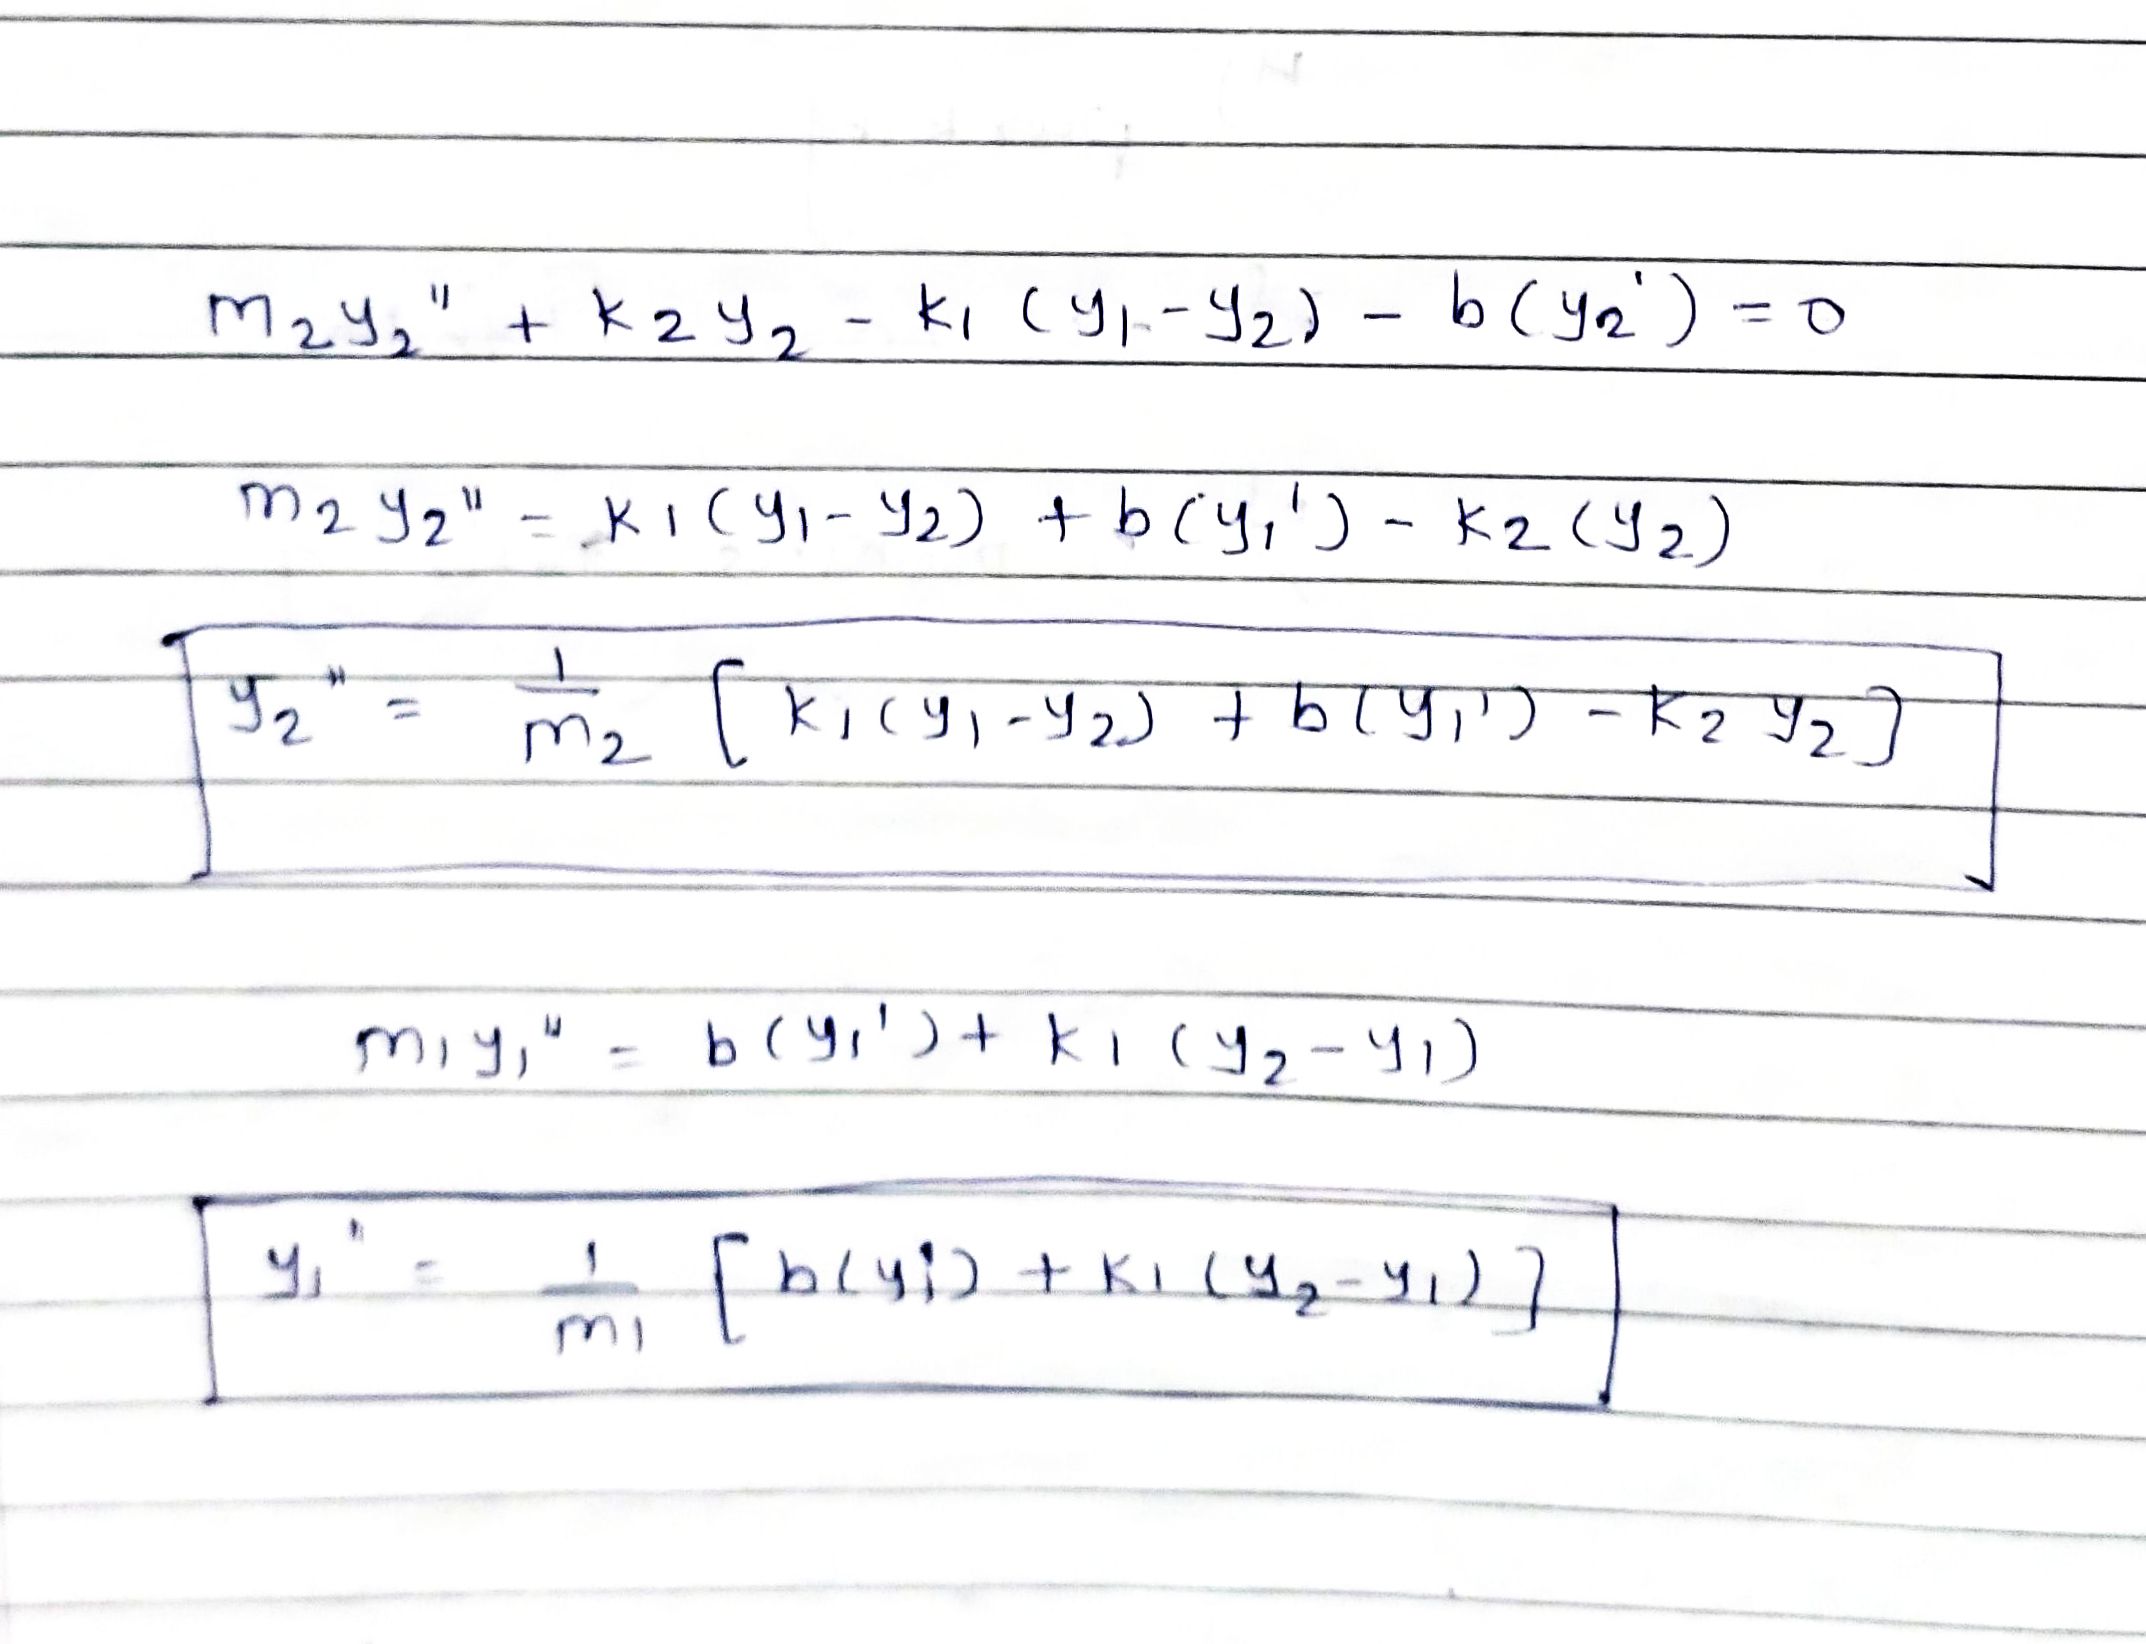 m₂y₂'' + k₂y₂ - k₁ (y₁-y₂) - b(y₂') = 0
m₂y₂'' = k₁(y₁-y₂) + b(y₁') - k₂(y₂)
y₂'' = 1/m₂ [k₁(y₁-y₂) + b(y₁') - k₂y₂]
m₁y₁'' = b(y₁') + k₁ (y₂-y₁)
y₁'' = 1/m₁ [b(y₁') + k₁(y₂-y₁)]